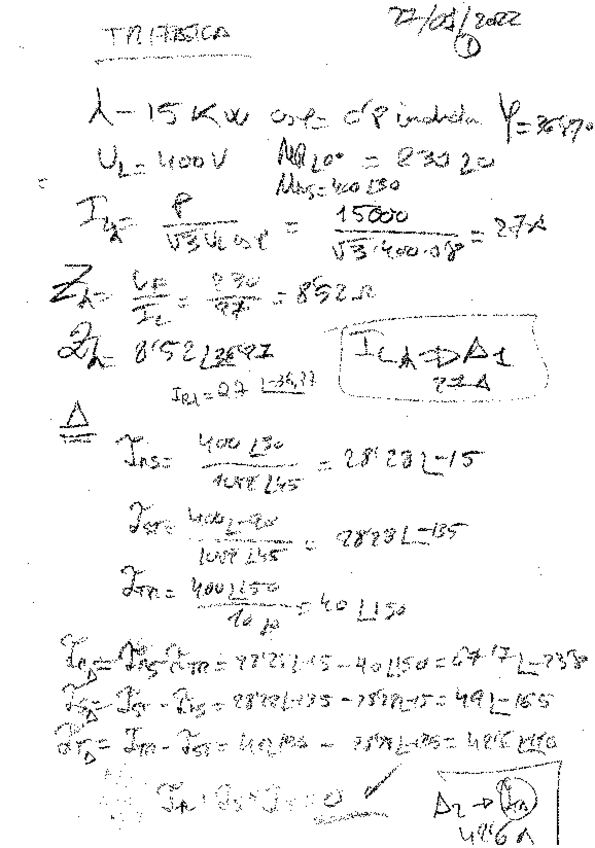 TRIFASICA
27/01/2022
①
λ - 15 KW cosφ = 0'8 inductiva φ = 36'870
U_L = 400 V U_R0 = 230 ∠0
U_RS = 400 ∠30
I_Lλ = P / √3 U_L cosφ = 15000 / √3·400·0'8 = 27A
Z_λ = U_F / I_L = 230 / 27 = 8'52 Ω
Z_λ = 8'52 ∠36'87
I_Lλ ⇒ A_1
27A
I_Rλ = 27 ∠-36,87
Δ
I_RS = 400 ∠30 / ∠45 = 28'28 ∠-15
I_ST = 400 ∠-90 / ∠45 = 28'28 ∠-135
I_TR = 400 ∠150 / 10 ∠0 = 40 ∠150
I_RΔ = I_RS - I_TR = 28'28 ∠-15 - 40 ∠150 = 67'17
I_SΔ = I_ST - I_RS = 28'28 ∠-135 - 28'28 ∠-15 = 49 ∠-165
I_TΔ = I_TR - I_ST = 28'28 ∠-135 =
I_R + I_S + I_T = 0 ✓
A_2 → I_TΔ
A